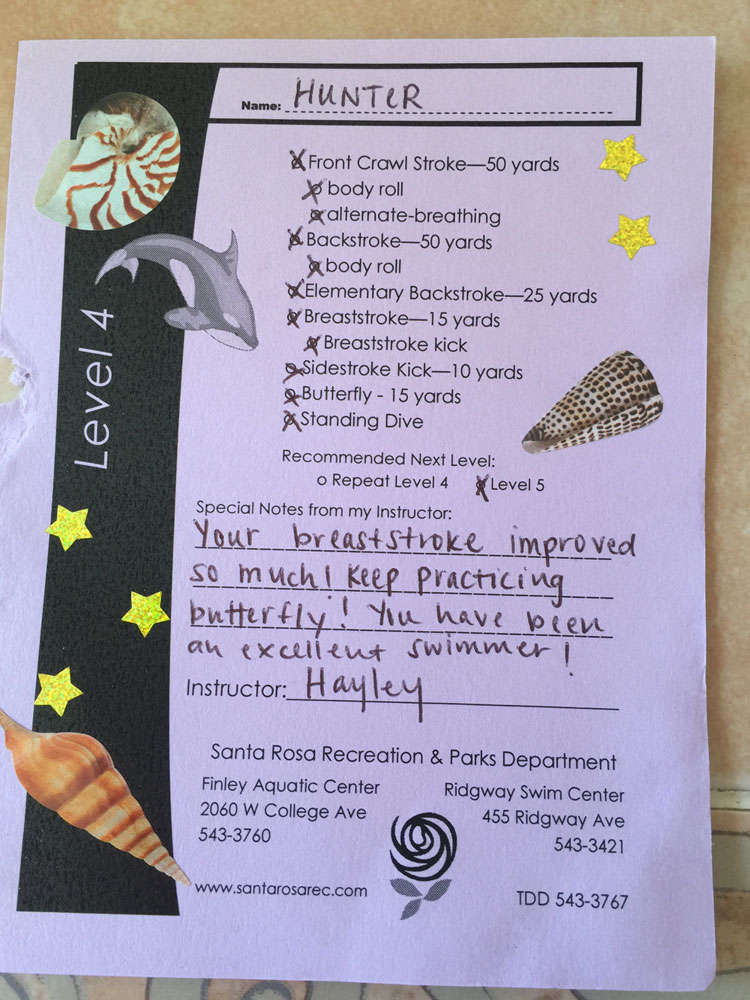 Name: HUNTER
Front Crawl Stroke—50 yards
body roll
alternate-breathing
Backstroke—50 yards
body roll
Elementary Backstroke—25 yards
Breaststroke—15 yards
Breaststroke kick
Sidestroke Kick—10 yards
Butterfly - 15 yards
Standing Dive
Level 4
Recommended Next Level:
o Repeat Level 4 Level 5
Special Notes from my Instructor:
Your breaststroke improved
so much! Keep practicing
butterfly! You have been
an excellent swimmer!
Instructor: Hayley
Santa Rosa Recreation & Parks Department
Finley Aquatic Center
2060 W College Ave
543-3760
Ridgway Swim Center
455 Ridgway Ave
543-3421
www.santarosarec.com
TDD 543-3767